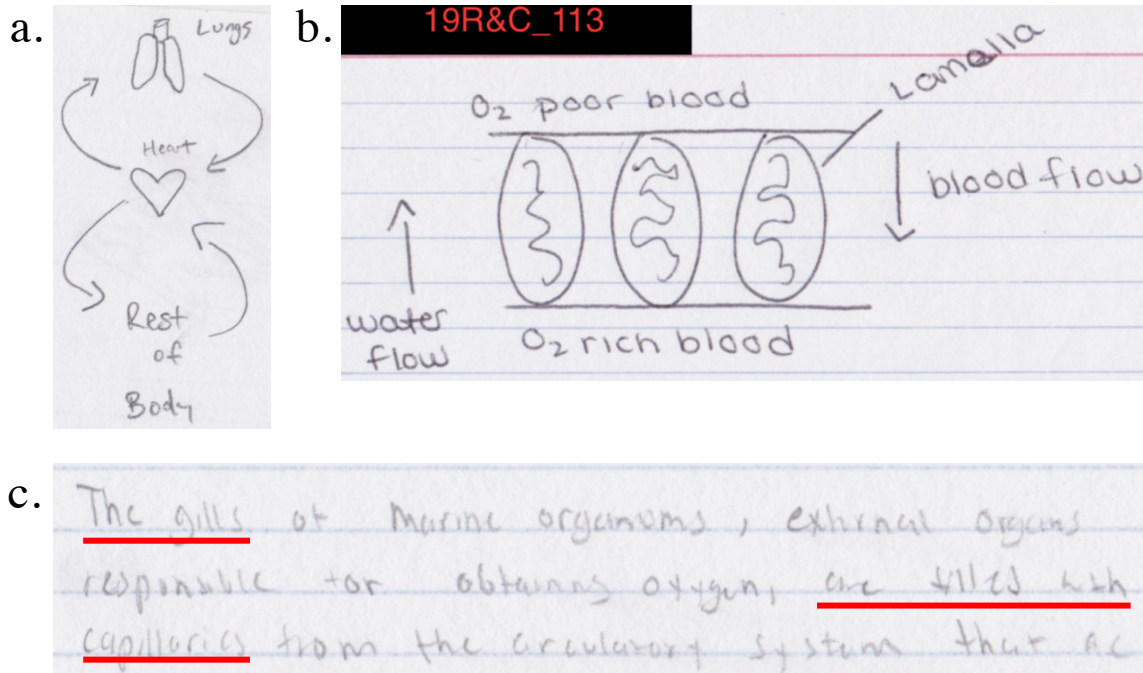 a.
Lungs
Heart
Rest
of
Body
b.
19R&C_113
O₂ poor blood
Lamella
blood flow
water
flow
O₂ rich blood
c.
The gills of marine organisms, external organs
responsible for obtaining oxygen, are filled with
capillaries from the circulatory system that ac